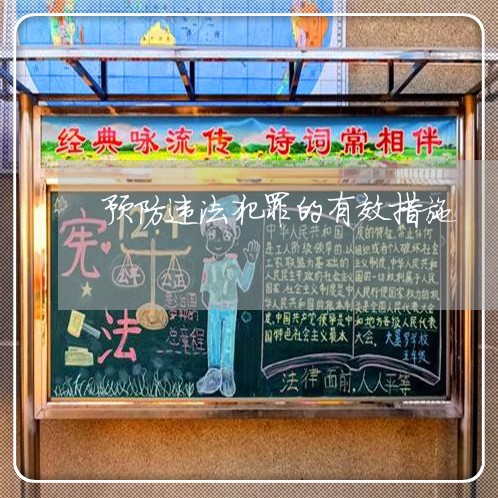 经典咏流传 诗词常相伴
预防违法犯罪的有效措施
12.4
宪
法
公平
公正
总章程
中华人民共和国
是工人阶级领导的,以
工农联盟为基础的
人民民主专政的社会主义
国家,社会主义制度是中
华人民共和国的根本制
度,中国共产党领导是中
国特色社会主义最本
质的特征,禁止任何
组织或者个人破坏社会
主义制度,中华人民共和
国的一切权利属于人民,
人民行使国家权力的机
关是全国人民代表大会
和地方各级人民代表
大会。
五年级
法律面前,人人平等